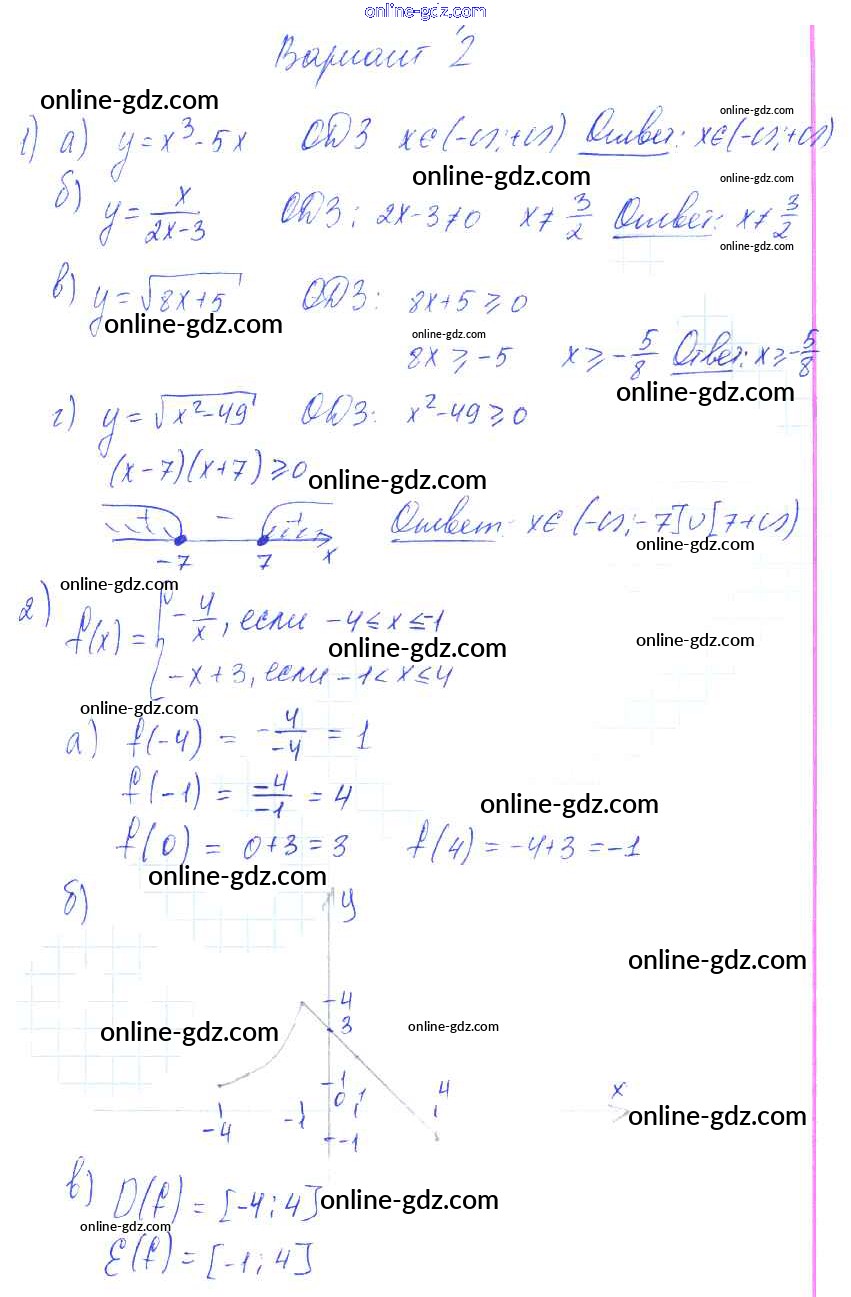 online-gdz.com
Вариант 2
online-gdz.com
online-gdz.com
1) а) y = x³ - 5x ОДЗ x∈(-∞; +∞) Ответ: x∈(-∞; +∞)
online-gdz.com
online-gdz.com
б) y = x/(2x-3) ОДЗ: 2x-3≠0 x≠3/2 Ответ: x≠3/2
online-gdz.com
в) y = √(8x+5) ОДЗ: 8x+5 ⩾ 0
online-gdz.com
online-gdz.com
8x ⩾ -5 x ⩾ -5/8 Ответ: x ⩾ -5/8
online-gdz.com
г) y = √(x²-49) ОДЗ: x²-49 ⩾ 0
(x-7)(x+7) ⩾ 0
online-gdz.com
+ - +
-7 7 x
Ответ: x∈(-∞; -7]∪[7 +∞)
online-gdz.com
online-gdz.com
2) f(x) = { -4/x, если -4 ≤ x ≤ -1
online-gdz.com
online-gdz.com
-x+3, если -1 < x ≤ 4
online-gdz.com
а) f(-4) = -4/-4 = 1
f(-1) = -4/-1 = 4
online-gdz.com
f(0) = 0+3 = 3 f(4) = -4+3 = -1
online-gdz.com
б)
y
online-gdz.com
4
3
online-gdz.com
online-gdz.com
1
0 1 4 x
-4 -1
-1
online-gdz.com
в) D(f) = [-4; 4]
online-gdz.com
online-gdz.com
E(f) = [-1; 4]